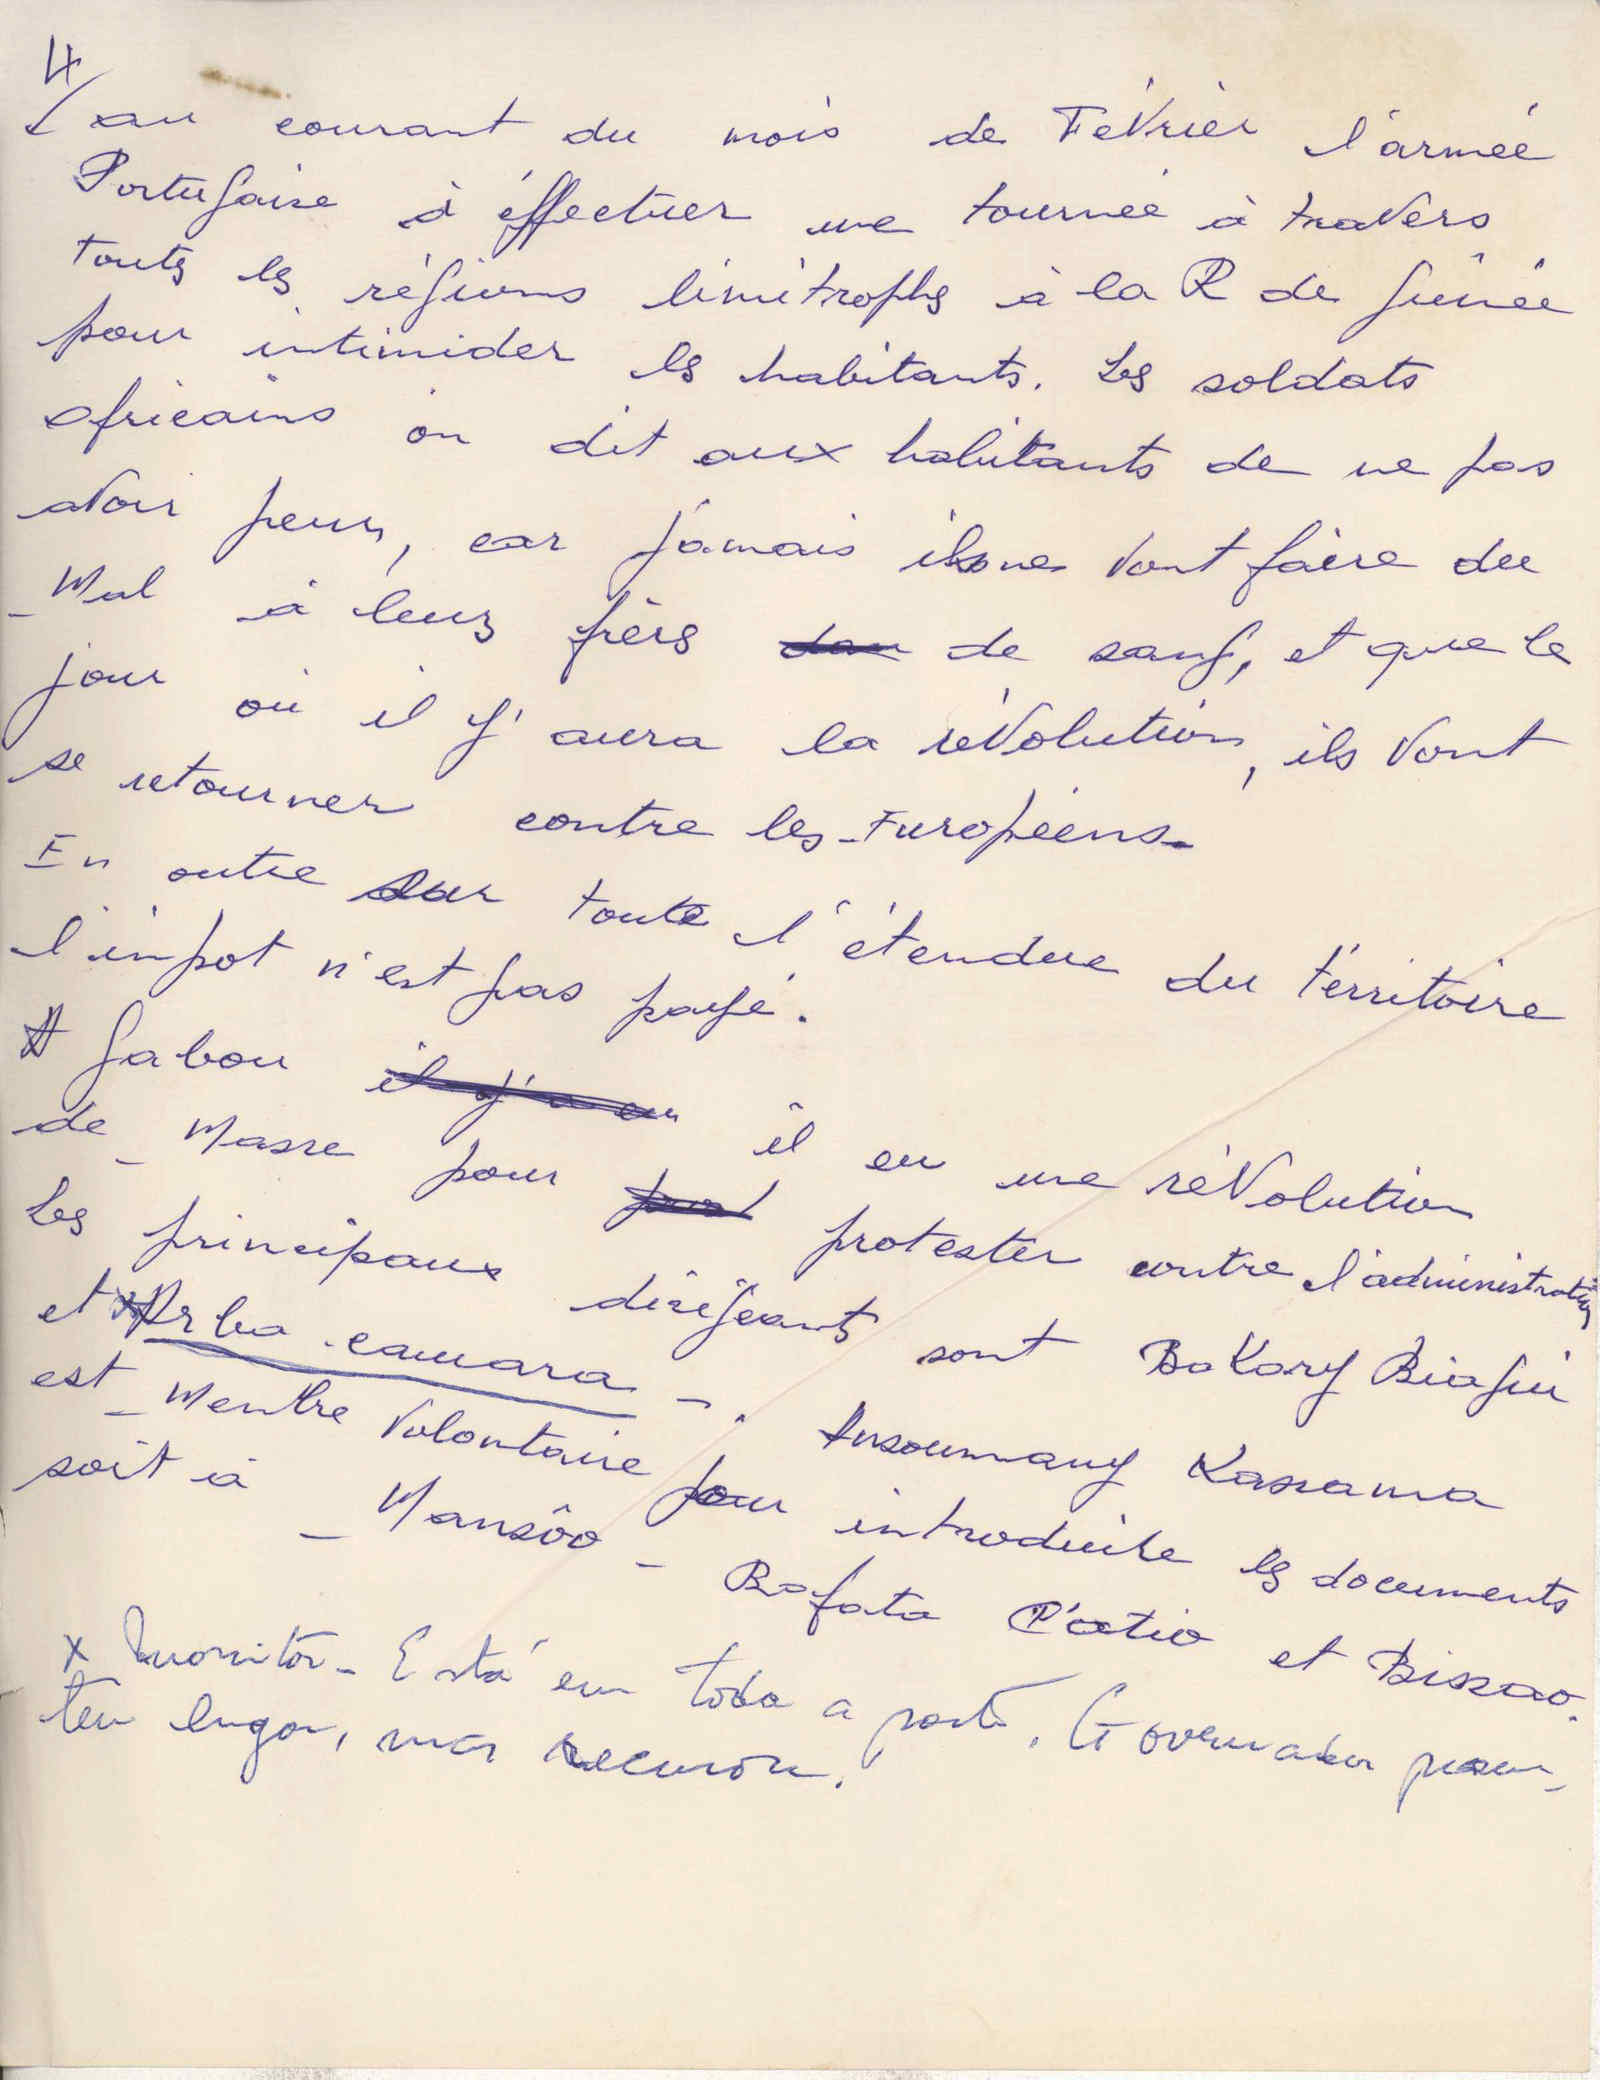 4/ au courant du mois de Février l'armée
Portugaise à éffectuer une tournée à travers
touts les régions limitrophs à la R de Guinée
pour intimider les habitants. Les soldats
africains on dit aux habitants de ne pas
avoir peur, car jamais ils ne vont faire du
Mal à leurs frères de sang, et que le
jour où il y' aura la révolution, ils vont
se retourner contre les Européens.
En outre sur toute l'étendue du térritoire
l'impot n'est pas payé.
A Gabou il y'a eu il eu une révolution
de Masse pour protester contre l'administration
Les principaux dirigeants sont Bakary Biagui
et Arba camara -. Ansoumany Kassama
est Mentre Volontaire pour introduire les documents
soit à - Mansôo - Bafata Catio et Bissao.
x Monitor - Está em toda a parte. Governador
tem lugar, mas recusou.